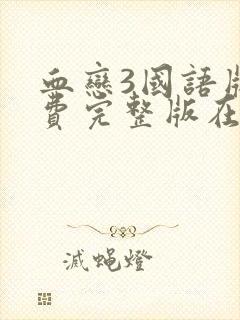 血戀3國語版
費完整版在
滅蠅燈